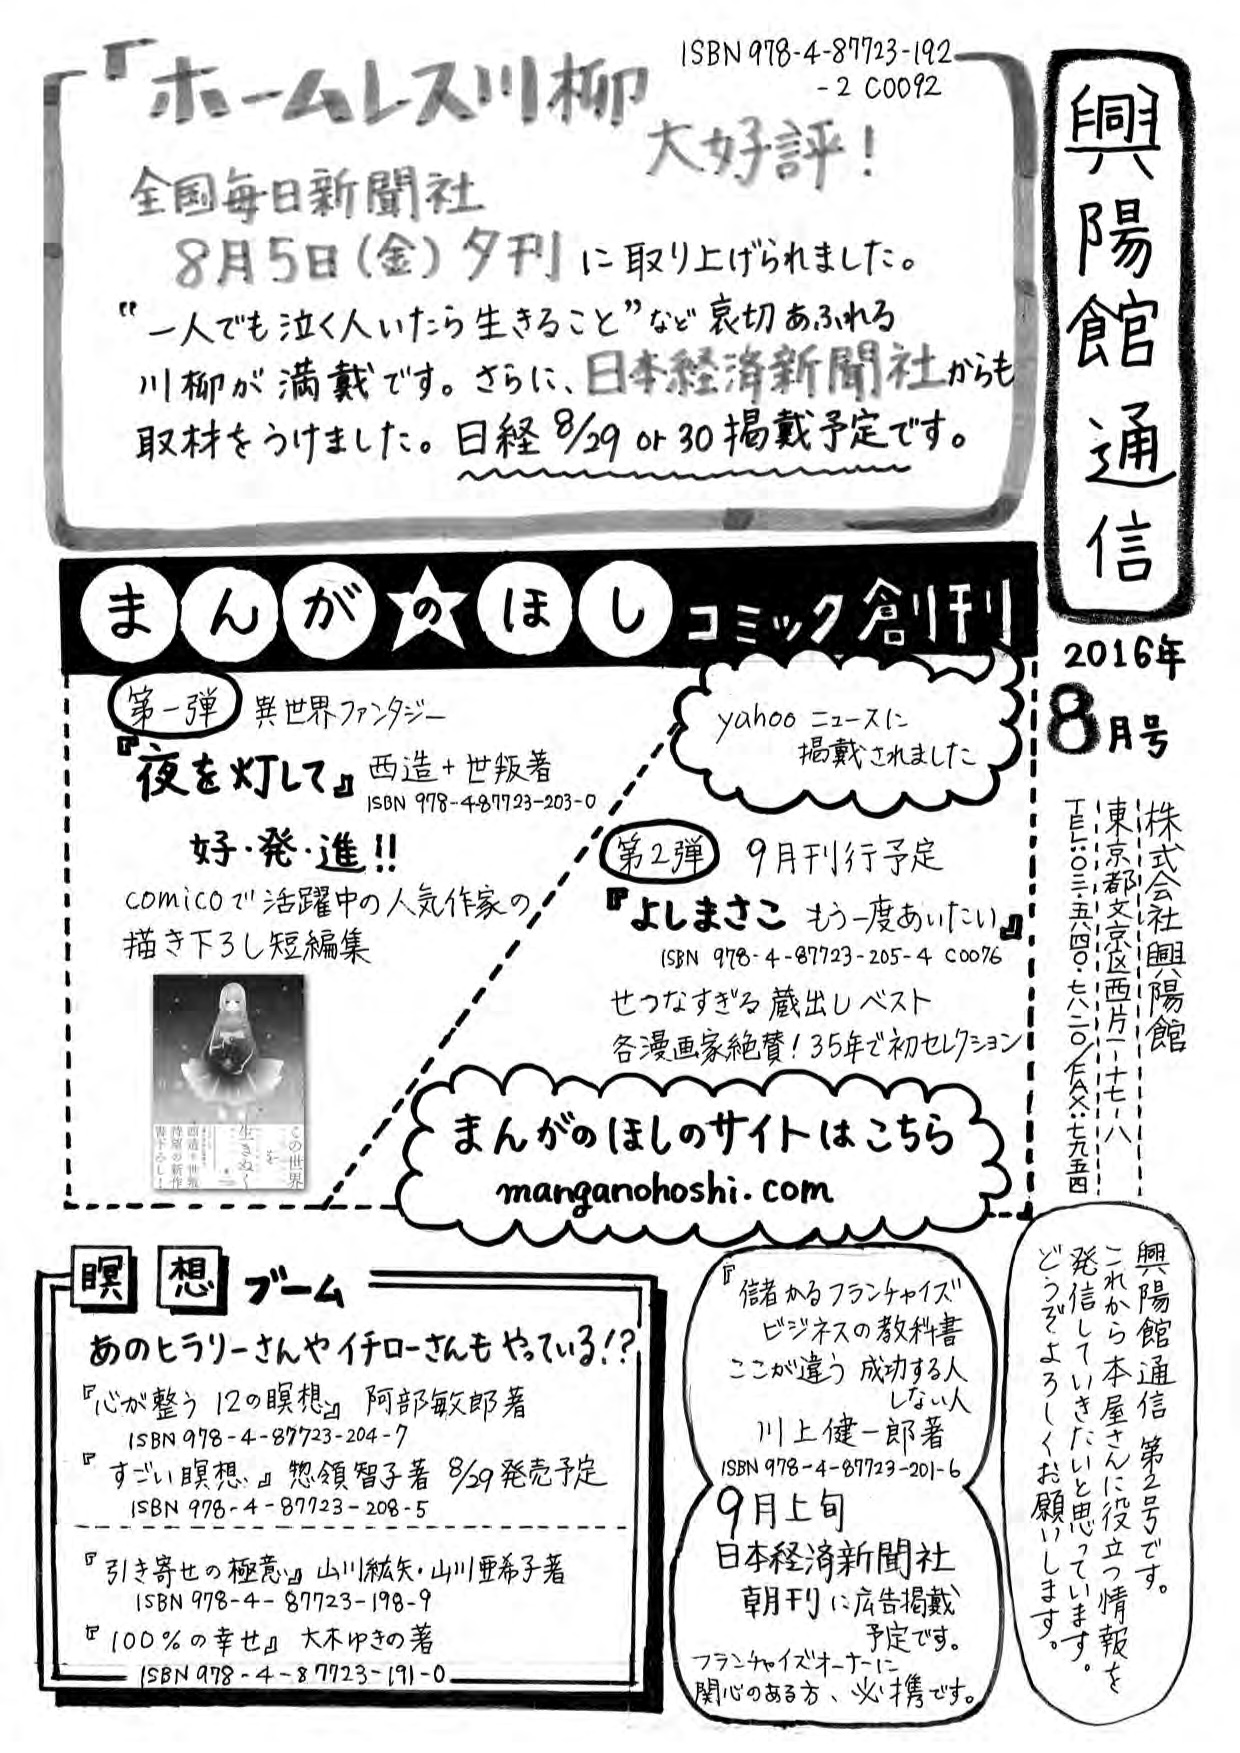 興陽館通信
2016年
8月号
株式会社興陽館
東京都文京区西片一-十七-八
TEL:〇三・五八四〇・七八二〇/FAX:七九五四
『ホームレス川柳
ISBN 978-4-87723-192
-2 C0092
大好評!
全国毎日新聞社
8月5日(金)夕刊に取り上げられました。
“一人でも泣く人いたら生きること”など哀切あふれる
川柳が満載です。さらに、日本経済新聞社からも
取材をうけました。日経8/29 or 30掲載予定です。
まんが☆のほし コミック創刊
第一弾 異世界ファンタジー
『夜を灯して』西造+世叛著
ISBN 978-4-87723-203-0
好・発・進!!
comicoで活躍中の人気作家の
描き下ろし短編集
この世界
を
生きぬく
西造+世叛
待望の新作
描下ろし!
yahooニュースに
掲載されました
第2弾 9月刊行予定
『よしまさこ もう一度あいたい』
ISBN 978-4-87723-205-4 C0076
せつなすぎる蔵出しベスト
各漫画家絶賛!35年で初セレクション
まんがのほしのサイトはこちら
manganohoshi.com
瞑想ブーム
あのヒラリーさんやイチローさんもやっている!?
『心が整う12の瞑想』阿部敏郎著
ISBN 978-4-87723-204-7
『すごい瞑想』惣領智子著 8/29発売予定
ISBN 978-4-87723-208-5
『引き寄せの極意』山川紘矢・山川亜希子著
ISBN 978-4-87723-198-9
『100%の幸せ』大木ゆきの著
ISBN 978-4-87723-191-0
『儲かるフランチャイズ
ビジネスの教科書
ここが違う 成功する人
しない人
川上健一郎著
ISBN 978-4-87723-201-6
9月上旬
日本経済新聞社
朝刊に広告掲載
予定です。
フランチャイズオーナーに
関心のある方、必携です。
興陽館通信 第2号です。
これから本屋さんに役立つ情報を
発信していきたいと思っています。
どうぞよろしくお願いします。